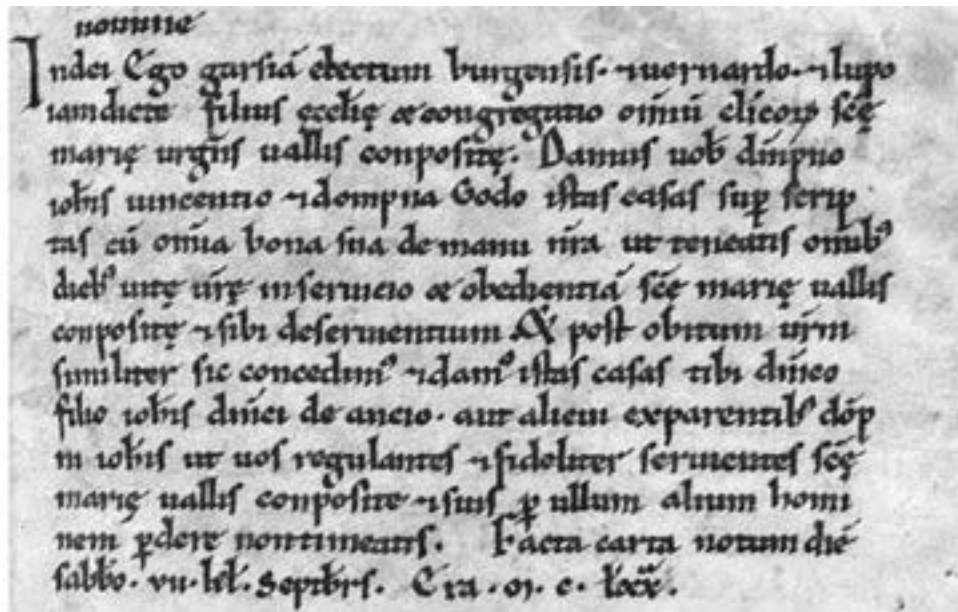 nomine
Indei Ego garsiã electum burgensis. ⁊ uernardo. ⁊ lupo
iamdicte filius ecclie᷒ et congregatio omiũ clicoꝝ scę
marię urgñs uallis conpositę. Damus uob dñipno
iohis uincentio ⁊ dompna Godo istas casas sup scrip
tas cũ omia bona sua de manu nra ut teneatis omib᾽
dieb᾽ uitę urę in seruicio et obedientiã scę marię uallis
conpositę ⁊ sibi deseruientium post obitum urm
similiter sic concedim᾽ ⁊ dam᾽ istas casas tibi dñico
filio iohis dñici de ancio. aut alicui ex parentib᾽ dõp
ni iohis ut uos regulantes ⁊ fideliter seruientes scę
marię uallis conposite ⁊ suis ꝑ ullum alium homi
nem ꝑdere non timeatis. Facta carta notum diẽ
sabbo. vii. kł. Septbrs. Era . c.